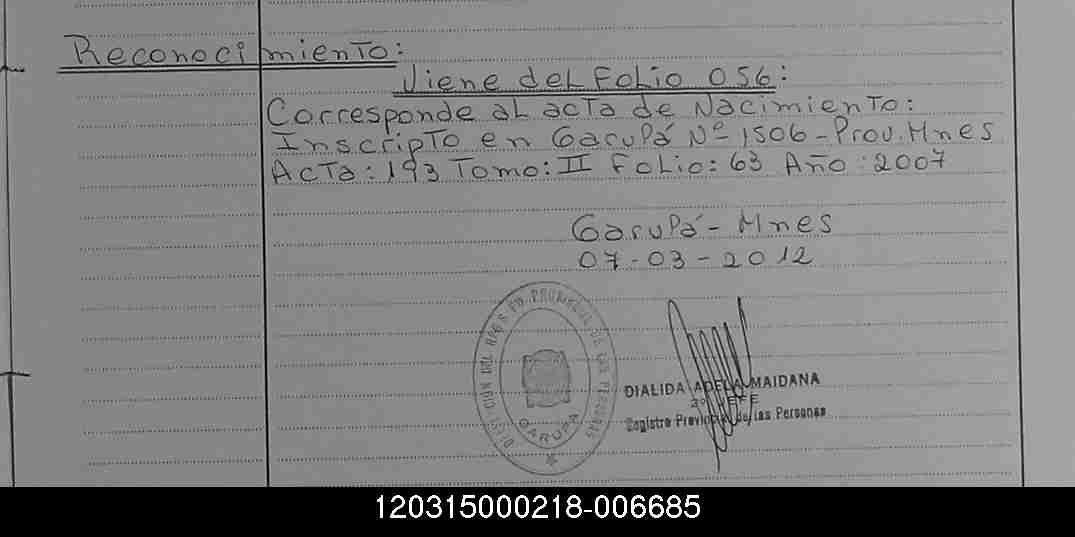 Reconocimiento:
Viene del Folio 056:
Corresponde al acta de Nacimiento:
Inscripto en Garupá Nº 1506 - Prov. Mnes
Acta: 193 Tomo: II Folio: 63 Año: 2007
Garupá - Mnes
07-03-2012
GARUPA
DIALIDA ADELA MAIDANA
2º JEFE
Registro Provincial de las Personas
120315000218-006685